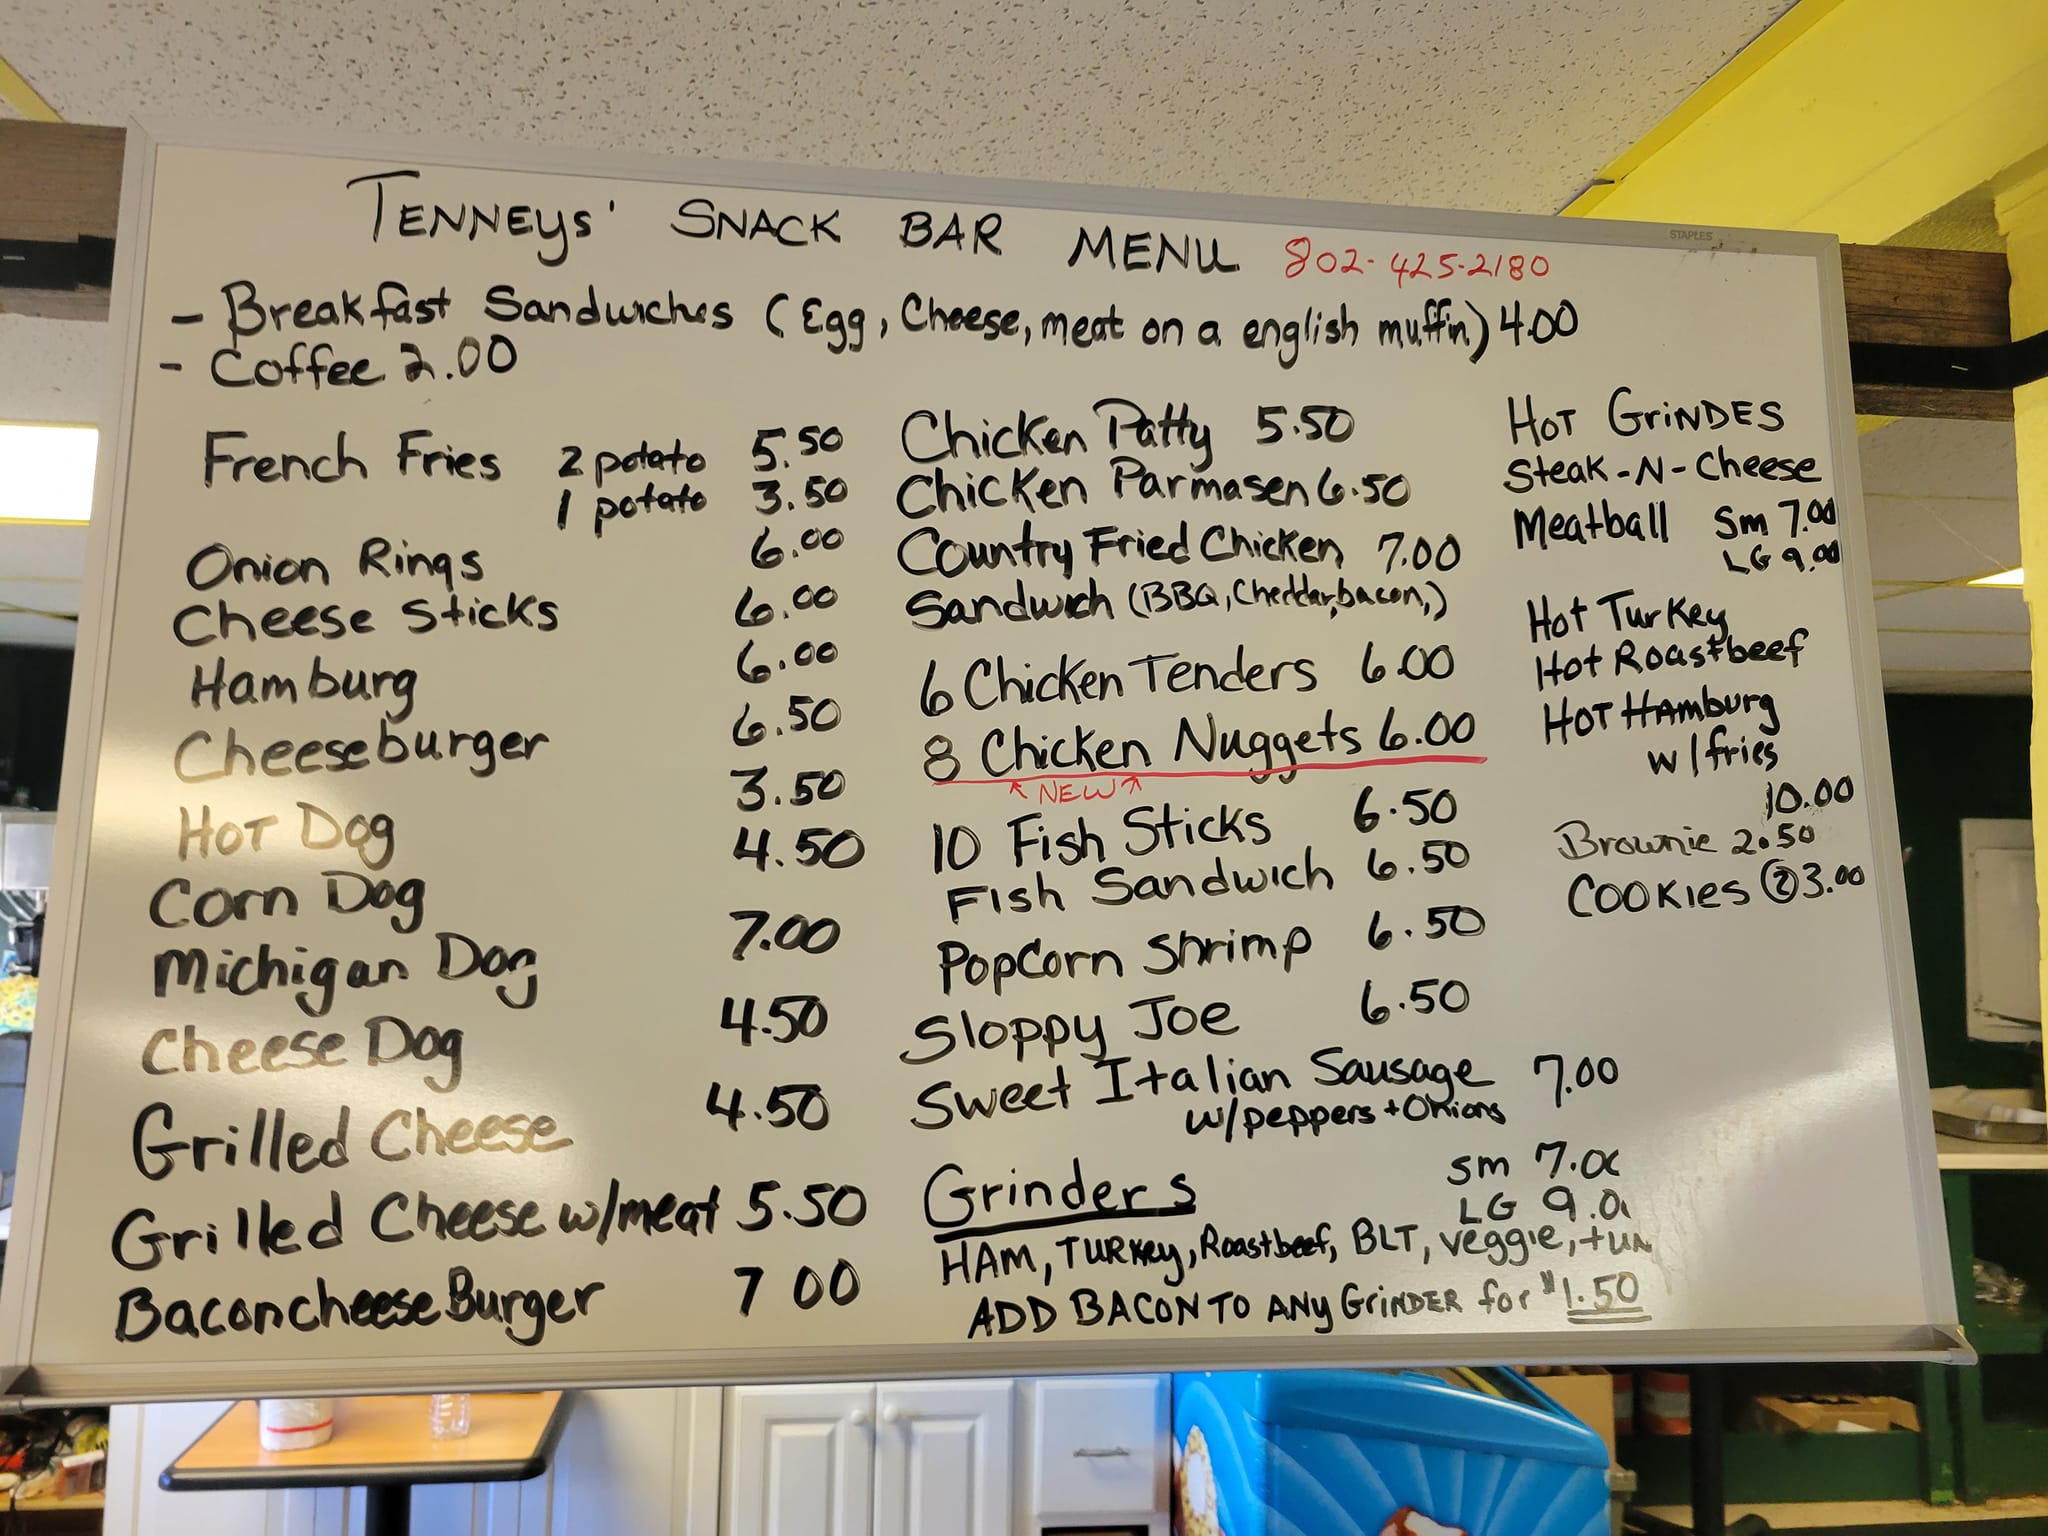 STAPLES
TENNEYS' SNACK BAR MENU 802-425-2180
- Breakfast Sandwiches (Egg, Cheese, meat on a english muffin) 4.00
- Coffee 2.00
French Fries 2 potato 5.50
1 potato 3.50
Onion Rings 6.00
Cheese Sticks 6.00
Hamburg 6.00
Cheeseburger 6.50
Hot Dog 3.50
Corn Dog 4.50
Michigan Dog 7.00
Cheese Dog 4.50
Grilled Cheese 4.50
Grilled Cheese w/meat 5.50
BaconcheeseBurger 7 00
Chicken Patty 5.50
Chicken Parmasen 6.50
Country Fried Chicken 7.00
Sandwich (BBQ, Cheddar, bacon,)
6 Chicken Tenders 6.00
8 Chicken Nuggets 6.00
NEW
10 Fish Sticks 6.50
Fish Sandwich 6.50
PopCorn Shrimp 6.50
Sloppy Joe 6.50
Sweet Italian Sausage 7.00
w/peppers + Onions
Grinders Sm 7.00
LG 9.0
HAM, TURKey, Roastbeef, BLT, veggie, tuna
ADD BACON TO ANy GriNDER for $1.50
HOT GriNDES
Steak-N-Cheese
Meatball Sm 7.00
LG 9.00
Hot Turkey
Hot Roastbeef
HOT HAmburg
w/fries
10.00
Brownie 2.50
Cookies (2) 3.00